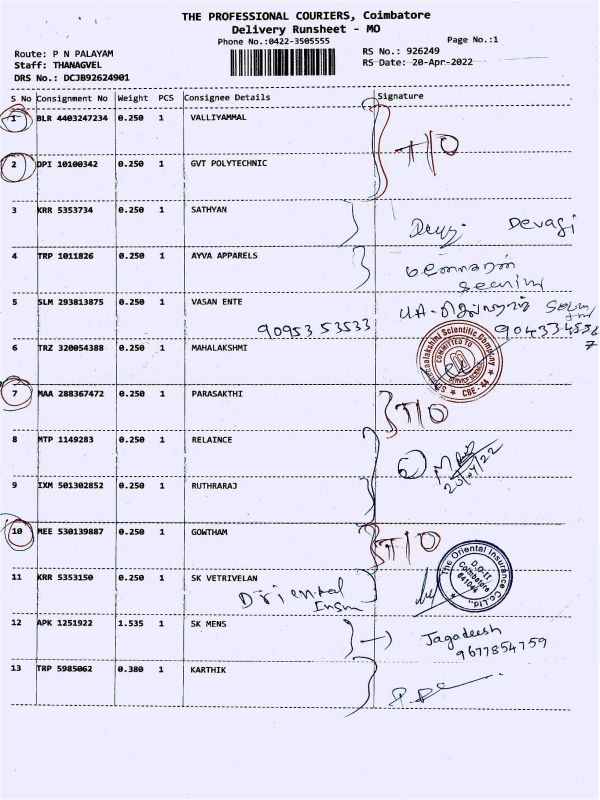 THE PROFESSIONAL COURIERS, Coimbatore
Delivery Runsheet - MO
Phone No.:0422-3505555
Page No.:1
Route: P N PALAYAM
RS No.: 926249
Staff: THANAGVEL
RS Date: 20-Apr-2022
DRS No.: DCJB92624901
S No Consignment No Weight PCS Consignee Details Signature
1 BLR 4403247234 0.250 1 VALLIYAMMAL
T/O
2 DPI 10100342 0.250 1 GVT POLYTECHNIC
3 KRR 5353734 0.250 1 SATHYAN
Devagi
4 TRP 1011826 0.250 1 AYVA APPARELS
5 SLM 293813875 0.250 1 VASAN ENTE
9095353533
6 TRZ 320054388 0.250 1 MAHALAKSHMI
Scientific Company
COMMITTED TO
CBE - 44
7 MAA 288367472 0.250 1 PARASAKTHI
T/O
8 MTP 1149283 0.250 1 RELAINCE
20/04/22
9 IXM 501302852 0.250 1 RUTHRARAJ
10 MEE 530139887 0.250 1 GOWTHAM
T/O
11 KRR 5353150 0.250 1 SK VETRIVELAN
Oriental
The Oriental Insurance Co.Ltd.
D.O-II
Coimbatore
641044
12 APK 1251922 1.535 1 SK MENS
Jagadeesh
9677854759
13 TRP 5985062 0.380 1 KARTHIK